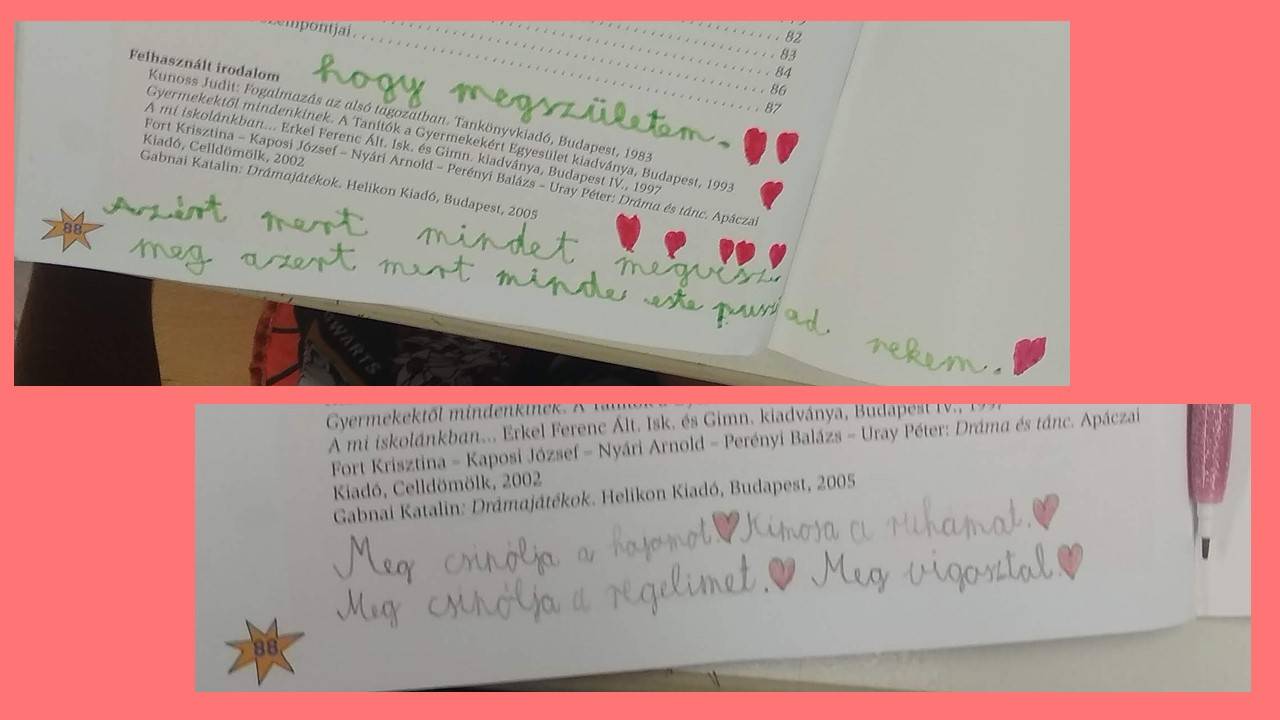 82
szempontjai 83
84
86
87
Felhasznált irodalom
hogy megszületem.
Kunoss Judit: Fogalmazás az alsó tagozatban. Tankönyvkiadó, Budapest, 1983
Gyermekektől mindenkinek. A Tanítók a Gyermekekért Egyesület kiadványa, Budapest, 1993
A mi iskolánkban... Erkel Ferenc Ált. Isk. és Gimn. kiadványa, Budapest IV., 1997
Fort Krisztina – Kaposi József – Nyári Arnold – Perényi Balázs – Uray Péter: Dráma és tánc. Apáczai
Kiadó, Celldömölk, 2002
Gabnai Katalin: Drámajátékok. Helikon Kiadó, Budapest, 2005
Azért mert mindet megvesz
88
meg azert mert minde este puszi ad nekem.
WARTS
Gyermekektől mindenkinek. A Budapest IV., 1997
A mi iskolánkban... Erkel Ferenc Ált. Isk. és Gimn. kiadványa, Budapest
Fort Krisztina – Kaposi József – Nyári Arnold – Perényi Balázs – Uray Péter: Dráma és tánc. Apáczai
Kiadó, Celldömölk, 2002
Gabnai Katalin: Drámajátékok. Helikon Kiadó, Budapest, 2005
Meg csinólja a hajamot. Kimosa a ruhamat.
Meg csinólja a regelimet. Meg vigasztal.
88